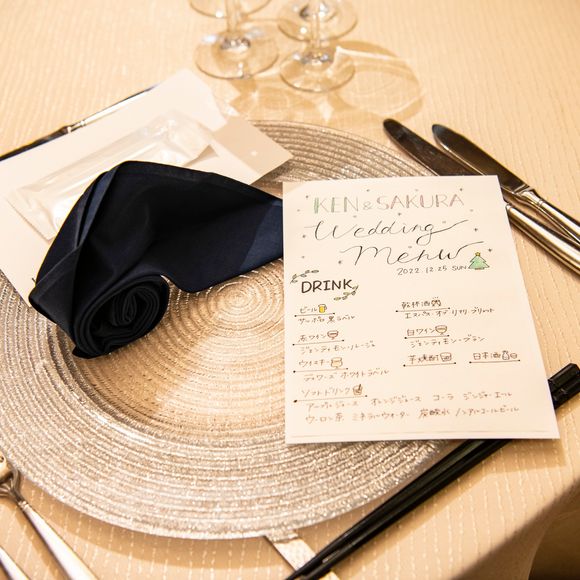 KEN & SAKURA
Wedding
Menu
2022.12.25 SUN
DRINK
ビール
サッポロ 黒ラベル
乾杯酒
エスパス オブ リマリ ブリュット
赤ワイン
ジャンティモン・ルージュ
白ワイン
ジャンティモン・ブラン
ウイスキー
デュワーズ ホワイトラベル
芋焼酎
日本酒
ソフトドリンク
アップルジュース オレンジジュース コーラ ジンジャーエール
ウーロン茶 ミネラルウォーター 炭酸水 ノンアルコールビール